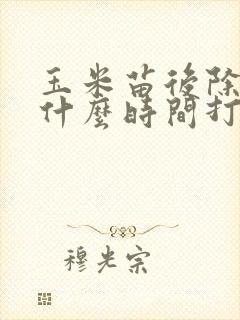 玉米苗後除
什麼時間打
穆光宗